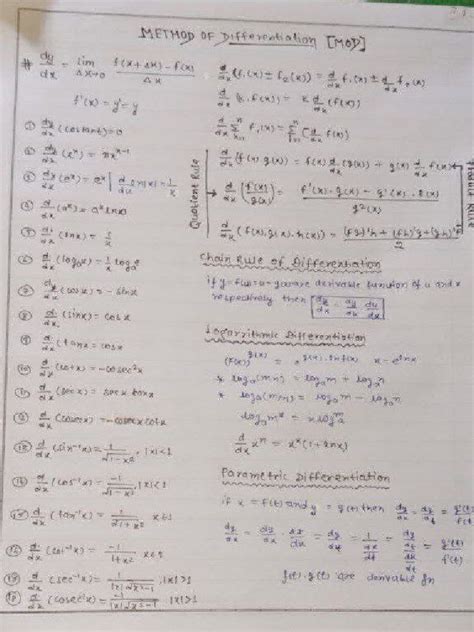 METHOD OF Differentiation [MOD]
# dy/dx = lim Δx→0 f(x+Δx)-f(x)/Δx
f'(x) = y' = y
① d/dx (constant) = 0
d/dx (x^n) = nx^(n-1)
d/dx (e^x) = e^x | d/dx ln(x) = 1/x
④ d/dx (a^x) = a^x ln x
d/dx (ln x) = 1/x
⑥ d/dx (log_a x) = 1/x log_a e
d/dx (cos x) = -sin x
⑧ d/dx (sin x) = cos x
⑨ d/dx (tan x = cos x
⑩ d/dx (cot x) = -cosec²x
⑪ d/dx (sec x) = sec x tan x
⑫ d/dx (cosec x) = -cosec x cot x
⑬ d/dx (sin⁻¹x) = 1/√(1-x²), |x|<1
⑭ d/dx (cos⁻¹x) = -1/√(1-x²), |x|<1
d/dx (tan⁻¹x) = 1/√(1+x²)
d/dx (cot⁻¹x) = -1/1+x²
d/dx (sec⁻¹x) = 1/|x|√(x²-1), |x|>1
⑱ d/dx (cosec⁻¹x) = -1/|x|√(x²-1), |x|>1
d/dx (f₁(x) ± f₂(x)) = d/dx f₁(x) ± d/dx f₂(x)
d/dx (k.f(x)) = k d/dx (f(x))
Quotient Rule
d/dx (f(x).g(x)) = f(x) d/dx (g(x)) + g(x) d/dx f(x)
d/dx (f(x)/g(x)) = f'(x).g(x) - g'(x).f(x)/g²(x)
Rule
d/dx (f(x).g(x).h(x)) = (fg)'h + (fh)'g + (gh)'f/2
Chain Rule of Differentiation
if y = f(u), u = g(x) are derivable function of u and x
respectively then dy/dx = dy/du du/dx
Logarithmic Differentiation
(f(x))^g(x) = e^(g(x).ln f(x)) x = e^(ln x)
* log_a(mn) = log_a m + log_a n
* log_a(m/n) = log_a m - log_a n
log_a m^x = x log_a m
d/dx x^x = x^x (1+ln x)
Parametric Differentiation
if x = f(t) and y = g(t) then dy/dx = dy/dt = g'(t)/f(t)
f(t), g(t) are derivable fn